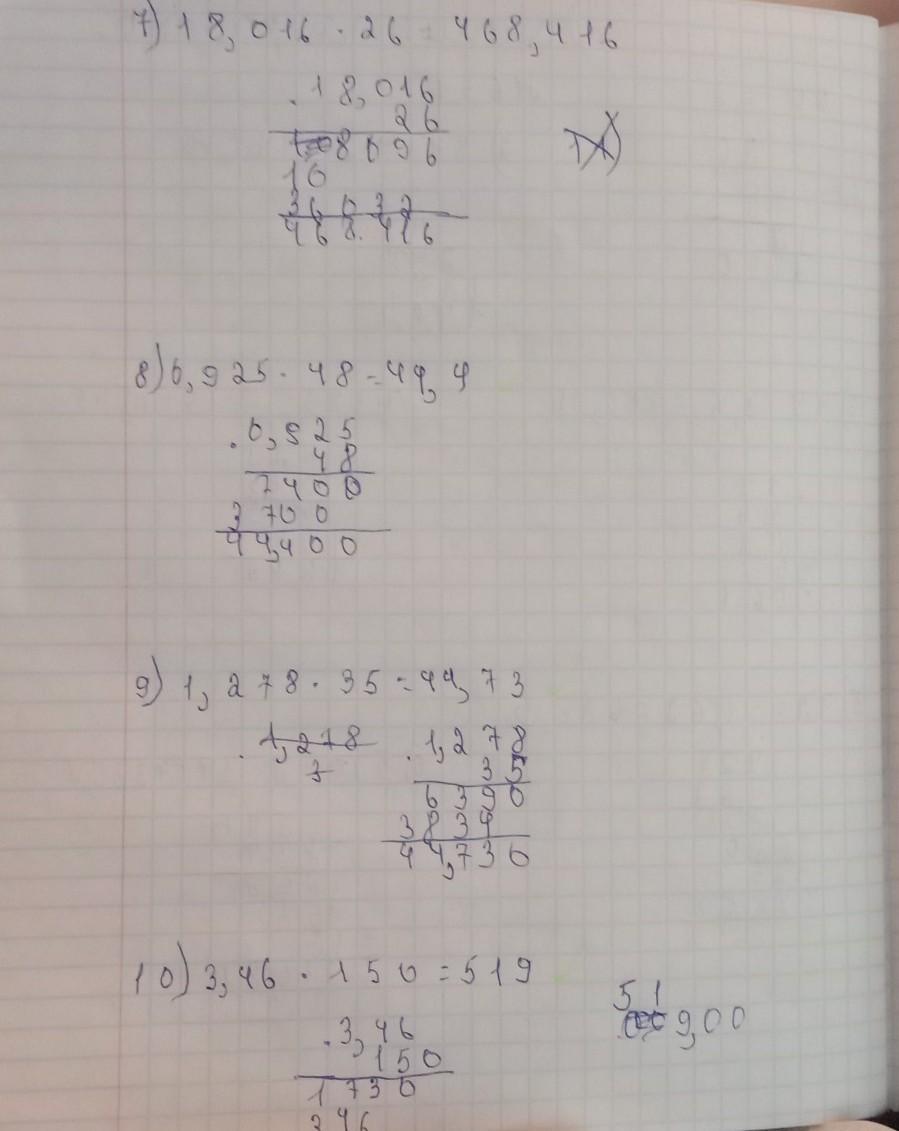 7) 18,016 · 26 = 468,416
. 18,016
26
8096
10
36032
468.416
8) 0,925 · 48 = 44,4
. 0,925
48
7400
3700
44,400
9) 1,278 · 35 = 44,73
. 1,278
3
. 1,278
35
6390
3834
44,730
10) 3,46 · 150 = 519
51
9,00
. 3,46
150
1730
346